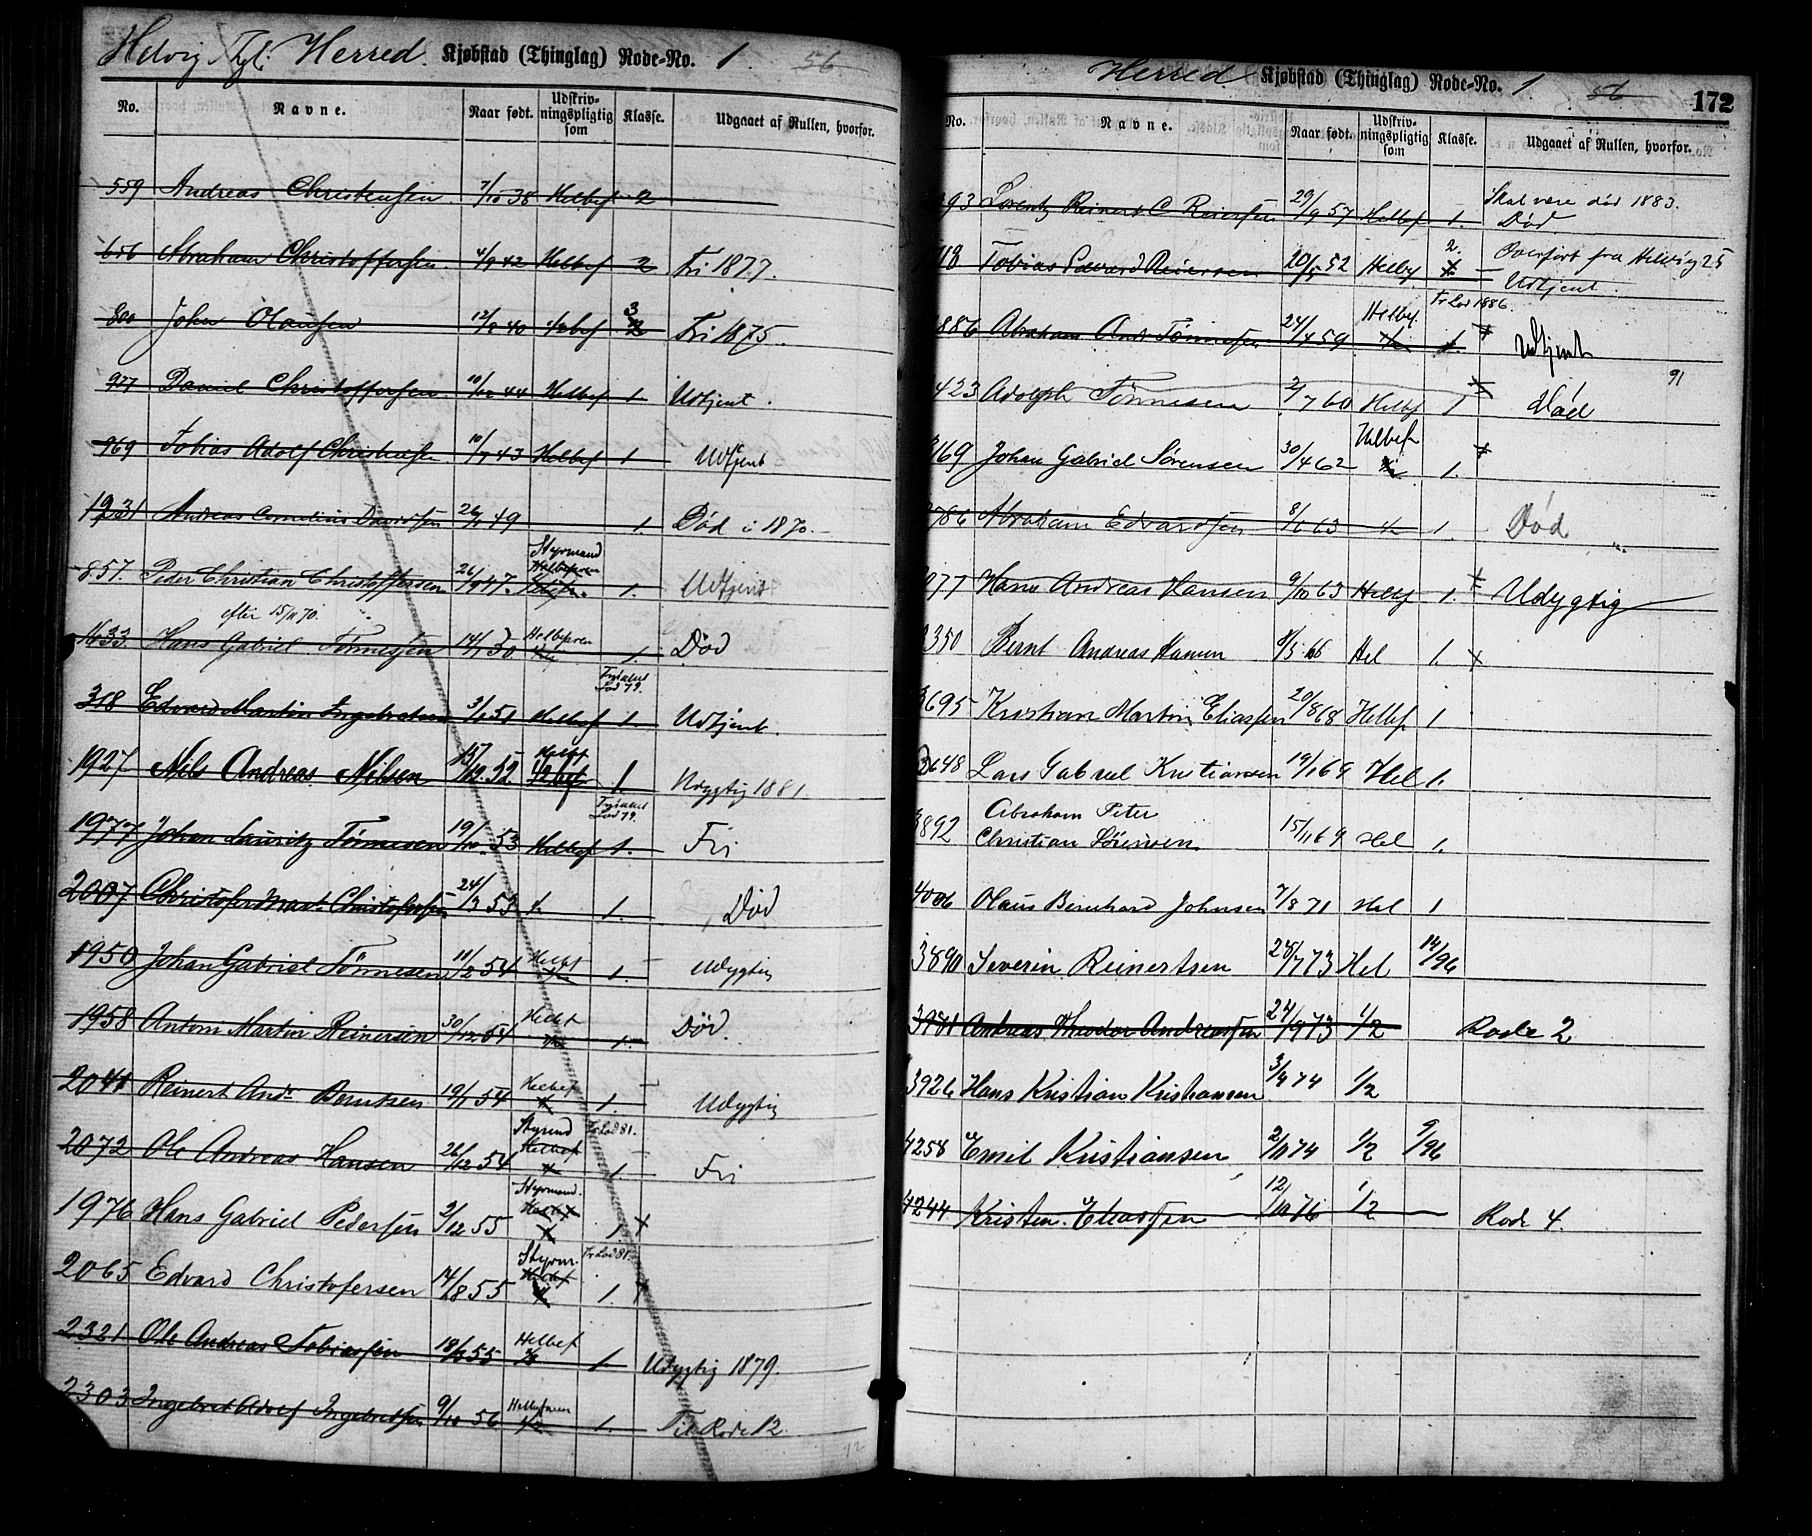 Helvig Tgl. Herred. Kjøbstad (Thinglag) Rode-No. 1 56
No. Navne. Naar født. Udskrivningspligtig som Klasse. Udgaaet af Rullen, hvorfor.
559 Andreas Christensen 7/10 38 Helbef 2
656 Abraham Christoffersen 4/9 42 Helbef 2 Fri 1877.
800 John Olausen 12/2 40 1/2 bef 3 Fri 1875.
927 Daniel Christoffersen 10/10 44 Helbef 1 Udtjent.
969 Tobias Adolf Christensen 10/7 43 Helbef 1 Udtjent
1931 Andreas Cornelius Davidsen 26/1 49 1. Død i 1870.
Styrmand
857. Peder Christian Christoffersen 26/9 47. Helbefaren 1. Udtjent
efter 15/11 70.
1633. Hans Gabriel Tønnesen 14/1 50 Helbefaren 1. Død
Frilod 79.
318 Edvard Martin Ingebretsen 3/1 51 Helbef 1 Udtjent.
1927 Nils Andreas Nilsen 17/12. 52 Helbf 1/2 bef 1. Udygtig 1881.
Frilod 79.
1977 Johan Lauritz Tønnesen 19/10. 53 Helbef 1. Fri
2007 Christofer Mart. Christofersen 24/3 53 1/2 1. Død
1950 Johan Gabriel Tønnesen 11/2 54 Helbf 1. Udygtig
1958 Anton Martin Reinersen 30/12. 54 Helbf 1. Død.
2041 Reinert And. Berntsen 19/1 54 Helbef 1. Udygtig
Styrmd Fr Lod 81.
2072 Ole Andreas Hansen 26/12 54 Helbef 1. Fri
Styrmand.
1976 Hans Gabriel Pedersen 2/12 55 Helbf 1 x
Styrm. Fr Lod 81.
2065 Edvard Christofersen 14/8 55 Helbef 1. x
2321 Ole Andreas Tobiassen 18/10 55 Helbef 1. Udygtig 1879.
2303 Ingebret Adolf Ingebretsen 9/10 56 Helbefaren 1/2 1. Til Rode 12.
Herred Kjøbstad (Thinglag) Rode-No. 1. 56 172
No. Navne. Naar født. Udskrivningspligtig som Klasse. Udgaaet af Rullen, hvorfor.
93 Lorentz Reinert C Reiersen 29/9 57 Helbef 1. Skal være død 1883. Død.
Tobias Edvard Reiersen 20/5 52 Helbf 2 Overført fra Helvig 25
Udtjent.
Fr Lod 1886.
886 Abraham And Tønnesen 24/4 59 Helbf. 1. Udtjent
91
423 Adolph Tønnesen 2/7 60 Helbf 1 Død
169 Johan Gabriel Sørensen 30/4 62 Helbef 1.
786 Abraham Edvardsen 8/6 63 1/2 1. Død
977 Hans Andreas Hansen 9/10 63 Helbf 1. Udygtig
350 Bernt Andreas Hansen 8/5. 66 Hel 1. x
3695 Kristian Martin Eliassen 20/8 68 Helbf 1
3648 Lars Gabriel Kristiansen 19/1 69 Hel 1.
Abraham Peter
3892 Christian Sørensen 15/11 69 Hel 1.
4006 Olaus Bernhard Johnsen 7/8 71 Hel 1
3890 Severin Reinertsen 28/7 73 Hel 14/96
3981 Andreas Theodor Andreassen 24/9 73 1/2 Rode 2
3926 Hans Kristian Kristiansen 3/4 74 1/2
4258 Emil Kristiansen 2/11 74 1/2 9/96
4244 Kristen Eliassen 12/10 76 1/2 Rode 4.